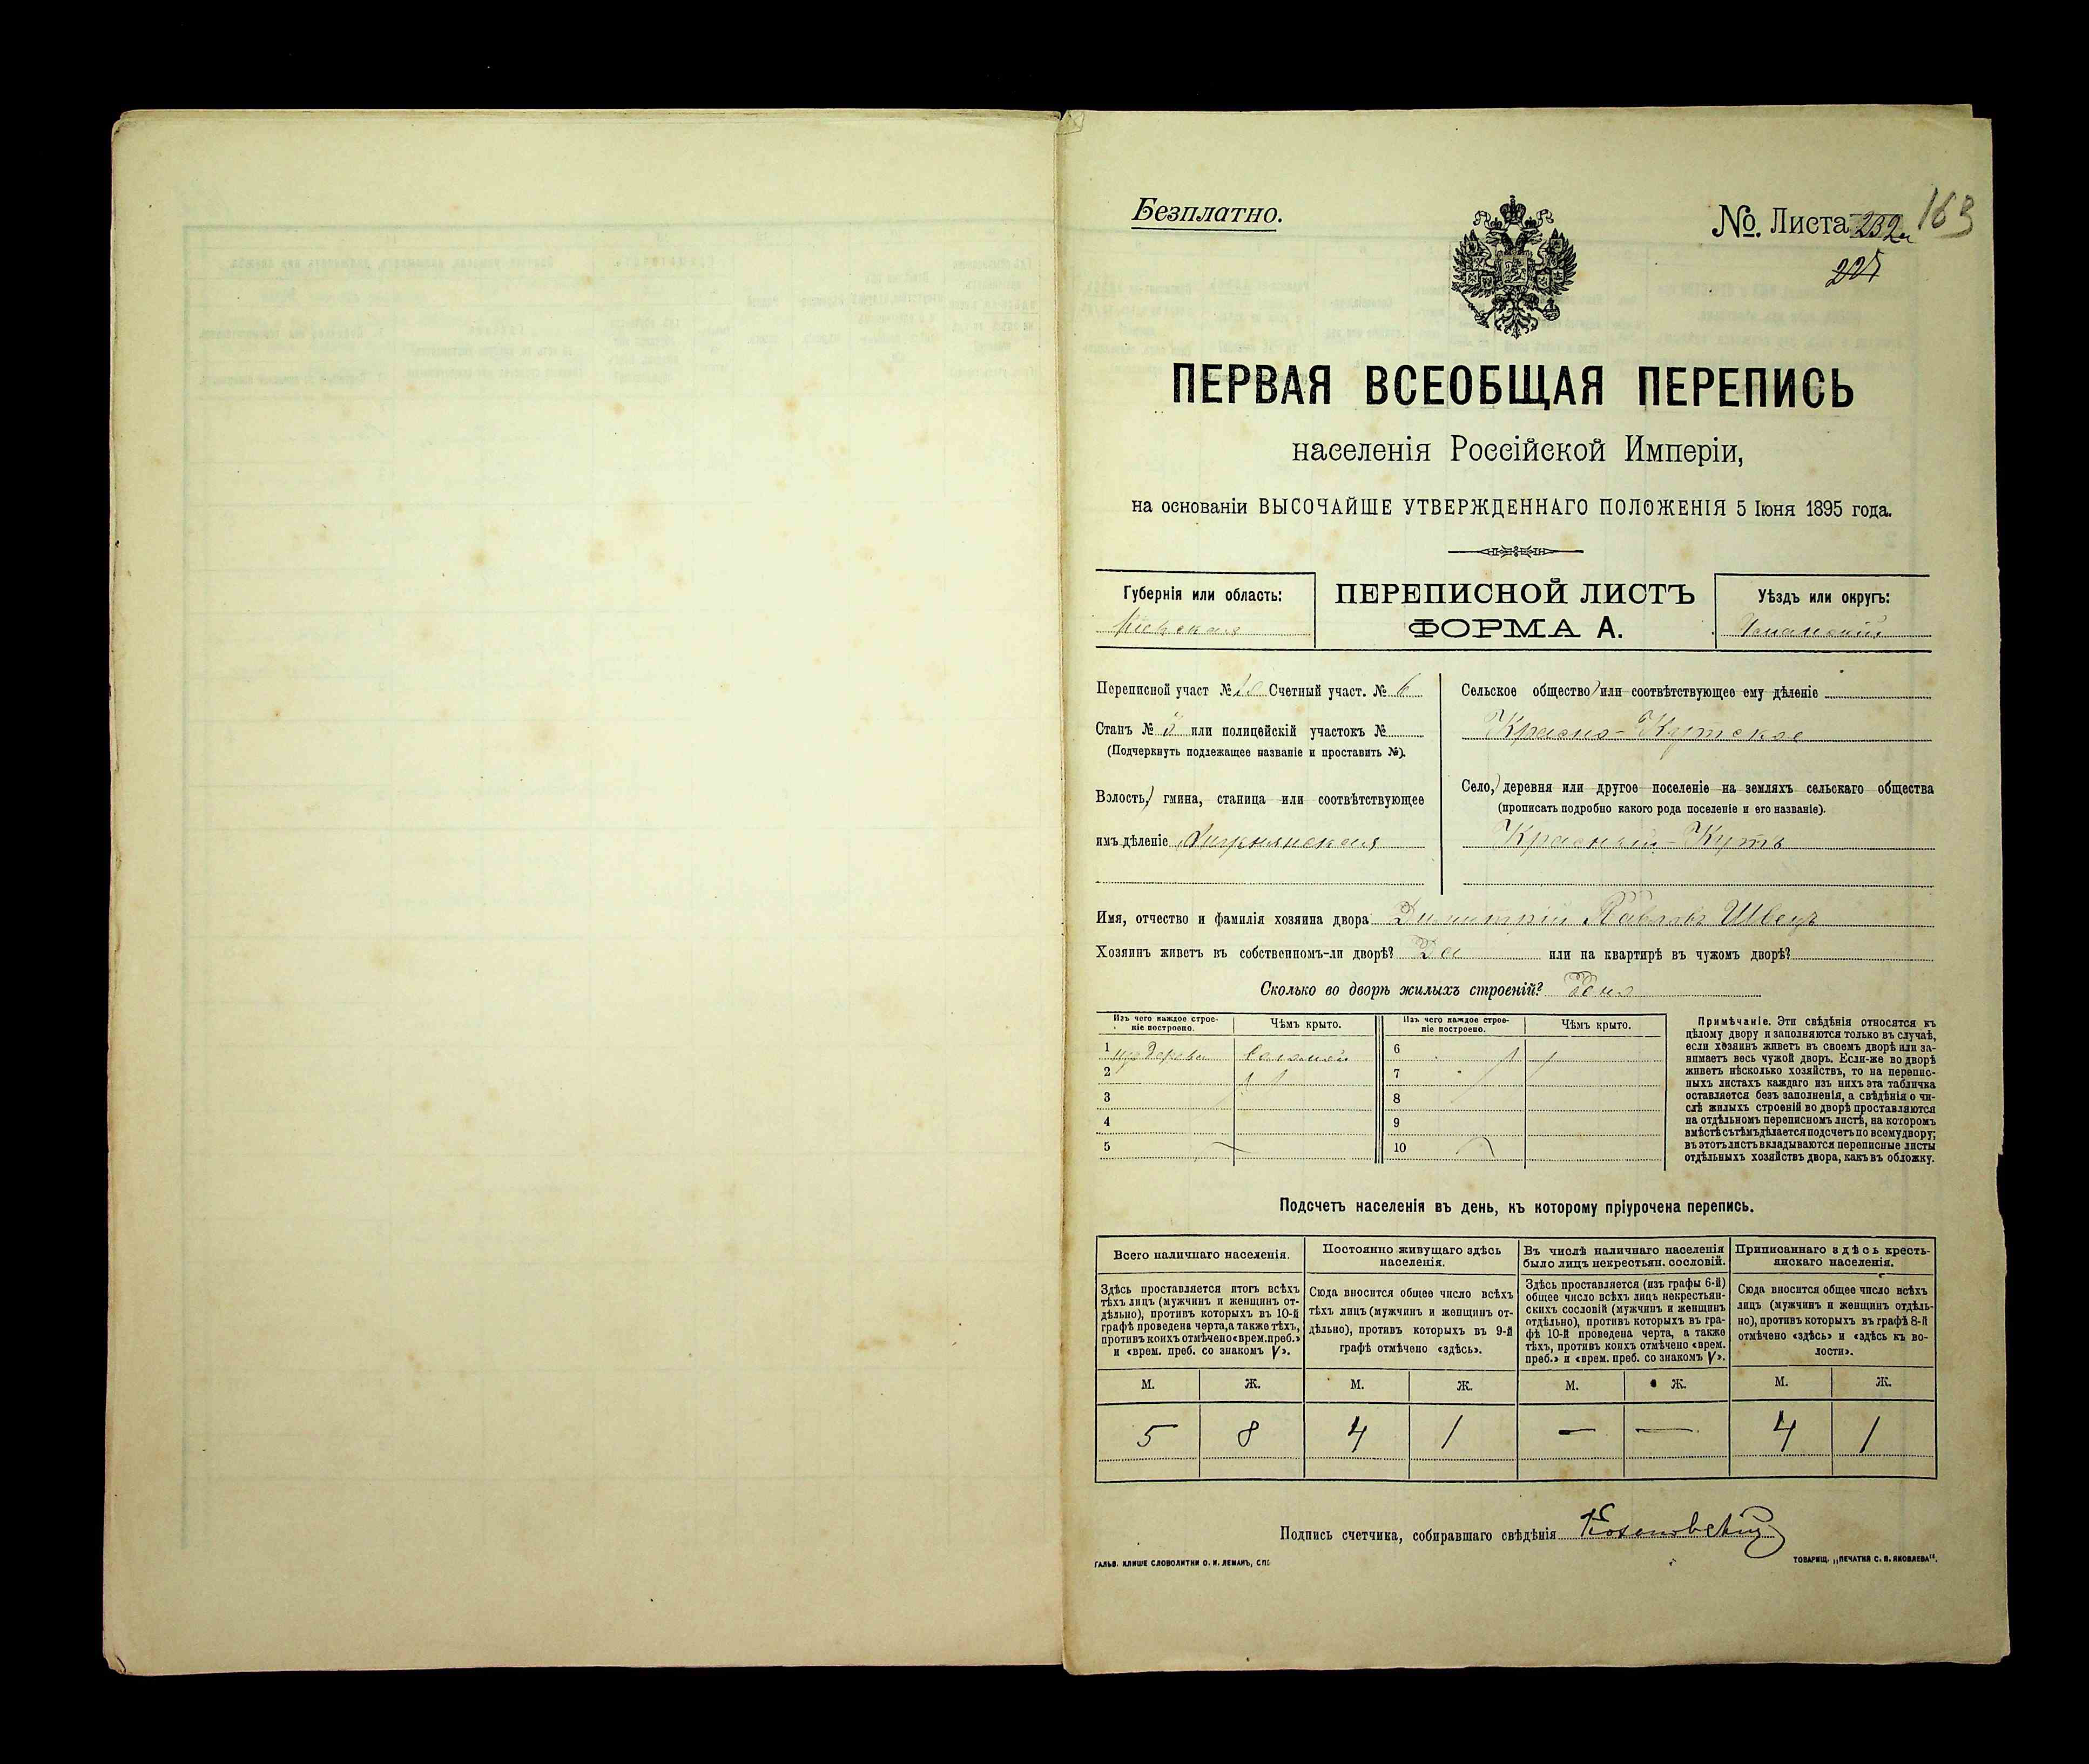 Безплатно.
№. Листа 232а 163
227
ПЕРВАЯ ВСЕОБЩАЯ ПЕРЕПИСЬ
населенія Россійской Имперіи,
на основаніи ВЫСОЧАЙШЕ УТВЕРЖДЕННАГО ПОЛОЖЕНІЯ 5 Іюня 1895 года.
Губернія или область:
Кіевская
ПЕРЕПИСНОЙ ЛИСТЪ
ФОРМА А.
Уѣздъ или округъ:
Уманскій
Переписной участ № Счетный участ. № 6
Станъ № или полицейскій участокъ №
(Подчеркнуть подлежащее названіе и проставить №).
Волость, гмина, станица или соотвѣтствующее
имъ дѣленіе
Сельское общество или соотвѣтствующее ему дѣленіе
Красно-Кутское
Село, деревня или другое поселеніе на земляхъ сельскаго общества
(прописать подробно какого рода поселеніе и его названіе).
Красный-Кутъ
Имя, отчество и фамилія хозяина двора Димитрій Павловъ Швецъ
Хозяинъ живетъ въ собственномъ-ли дворѣ? Да или на квартирѣ въ чужомъ дворѣ?
Сколько во дворѣ жилыхъ строеній? Одно
Изъ чего каждое строе-
ніе построено.
Чѣмъ крыто.
Изъ чего каждое строе-
ніе построено.
Чѣмъ крыто.
1 изъ дерева соломой 6
2 7
3 8
4 9
5 10
Примѣчаніе. Эти свѣдѣнія относятся къ
цѣлому двору и заполняются только въ случаѣ,
если хозяинъ живетъ въ своемъ дворѣ или за-
нимаетъ весь чужой дворъ. Если-же во дворѣ
живетъ нѣсколько хозяйствъ, то на перепис-
ныхъ листахъ каждаго изъ нихъ эта табличка
оставляется безъ заполненія, а свѣдѣнія о чи-
слѣ жилыхъ строеній во дворѣ проставляются
на отдѣльномъ переписномъ листѣ, на которомъ
вмѣстѣ съ тѣмъ дѣлается подсчетъ по всему двору;
въ этотъ листъ вкладываются переписные листы
отдѣльныхъ хозяйствъ двора, какъ въ обложку.
Подсчетъ населенія въ день, къ которому пріурочена перепись.
Всего наличнаго населенія.
Здѣсь проставляется итогъ всѣхъ
тѣхъ лицъ (мужчинъ и женщинъ от-
дѣльно), противъ которыхъ въ 10-й
графѣ проведена черта, а также тѣхъ,
противъ коихъ отмѣчено «врем. преб.»
и «врем. преб. со знакомъ V».
Постоянно живущаго здѣсь
населенія.
Сюда вносится общее число всѣхъ
тѣхъ лицъ (мужчинъ и женщинъ от-
дѣльно), противъ которыхъ въ 9-й
графѣ отмѣчено «здѣсь».
Въ числѣ наличнаго населенія
было лицъ некрестьян. сословій.
Здѣсь проставляется (изъ графы 6-й)
общее число всѣхъ лицъ некрестьян-
скихъ сословій (мужчинъ и женщинъ
отдѣльно), противъ которыхъ въ гра-
фѣ 10-й проведена черта, а также
тѣхъ, противъ коихъ отмѣчено «врем.
преб.» и «врем. преб. со знакомъ V».
Приписаннаго здѣсь кресть-
янскаго населенія.
Сюда вносится общее число всѣхъ
лицъ (мужчинъ и женщинъ отдѣль-
но), противъ которыхъ въ графѣ 8-й
отмѣчено «здѣсь» и «здѣсь къ во-
лости».
М. Ж. М. Ж. М. Ж. М. Ж.
5 8 4 1 — — 4 1
Подпись счетчика, собиравшаго свѣдѣнія
ГАЛЬВ. КЛИШЕ СЛОВОЛИТНИ О. И. ЛЕМАНЪ, СПБ.
ТОВАРИЩ. „ПЕЧАТНЯ С. П. ЯКОВЛЕВА".